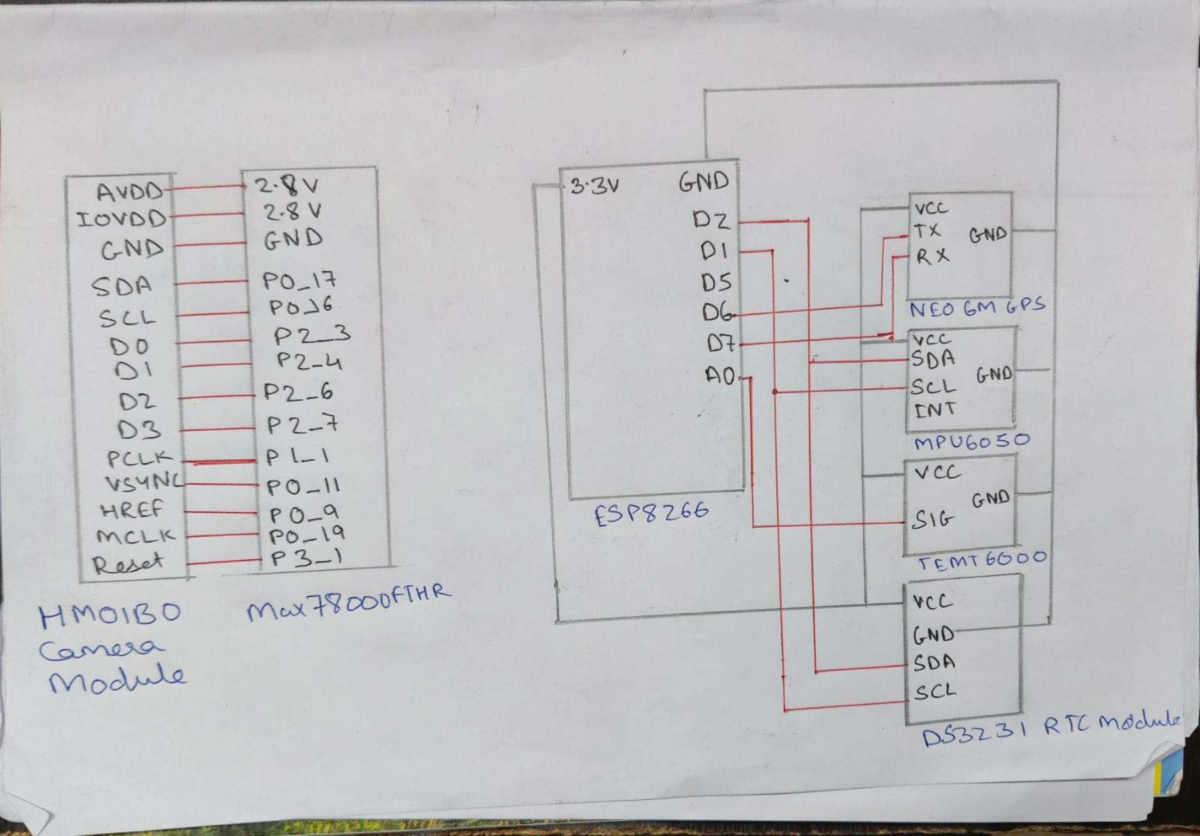 AVDD
IOVDD
GND
SDA
SCL
D0
D1
D2
D3
PCLK
VSYNC
HREF
MCLK
Reset
HM01B0
Camera
Module
2.8V
2.8V
GND
P0_17
P0_16
P2_3
P2_4
P2_6
P2_7
P1_1
P0_11
P0_9
P0_19
P3_1
Max78000FTHR
3.3V GND
D2
D1
D5
D6
D7
A0
ESP8266
VCC
TX GND
RX
NEO 6M GPS
VCC
SDA
SCL GND
INT
MPU6050
VCC
GND
SIG
TEMT6000
VCC
GND
SDA
SCL
DS3231 RTC Module